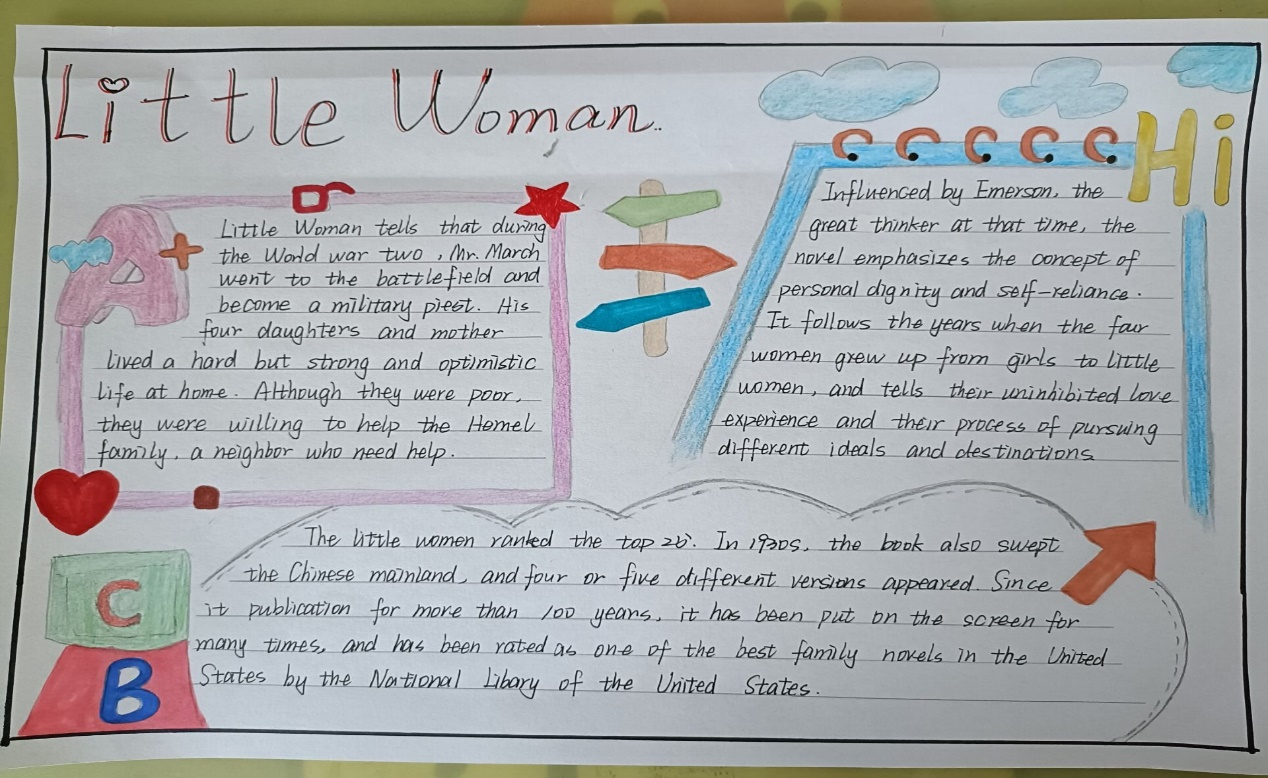 Little Woman..
Hi
A
Little Woman tells that during
the World war two, Mr. March
went to the battlefield and
become a military piest. His
four daughters and mother
lived a hard but strong and optimistic
life at home. Although they were poor,
they were willing to help the Hemel
family, a neighbor who need help.
Influenced by Emerson, the
great thinker at that time, the
novel emphasizes the concept of
personal dignity and self-reliance.
It follows the years when the four
women grew up from girls to little
women, and tells their uninhibited love
experience and their process of pursuing
different ideals and destinations
The little women ranked the top 25. In 1930s, the book also swept
the Chinese mainland, and four or five different versions appeared. Since
it publication for more than 100 years, it has been put on the screen for
many times, and has been rated as one of the best family novels in the United
States by the National Libary of the United States.
C
B